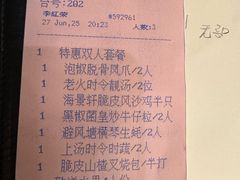 台号:202
李红荣 #592961
27 Jun,25 20:23 人数:3
1 特惠双人套餐
1 泡椒脱骨凤爪/2人
1 老火时令靓汤/2位
1 海景轩脆皮风沙鸡半只
1 黑椒菌皇炒牛仔粒/2人
1 避风塘横琴生蚝/2人
1 上汤时令时蔬/2人
1 脆皮山楂叉烧包/半打
1